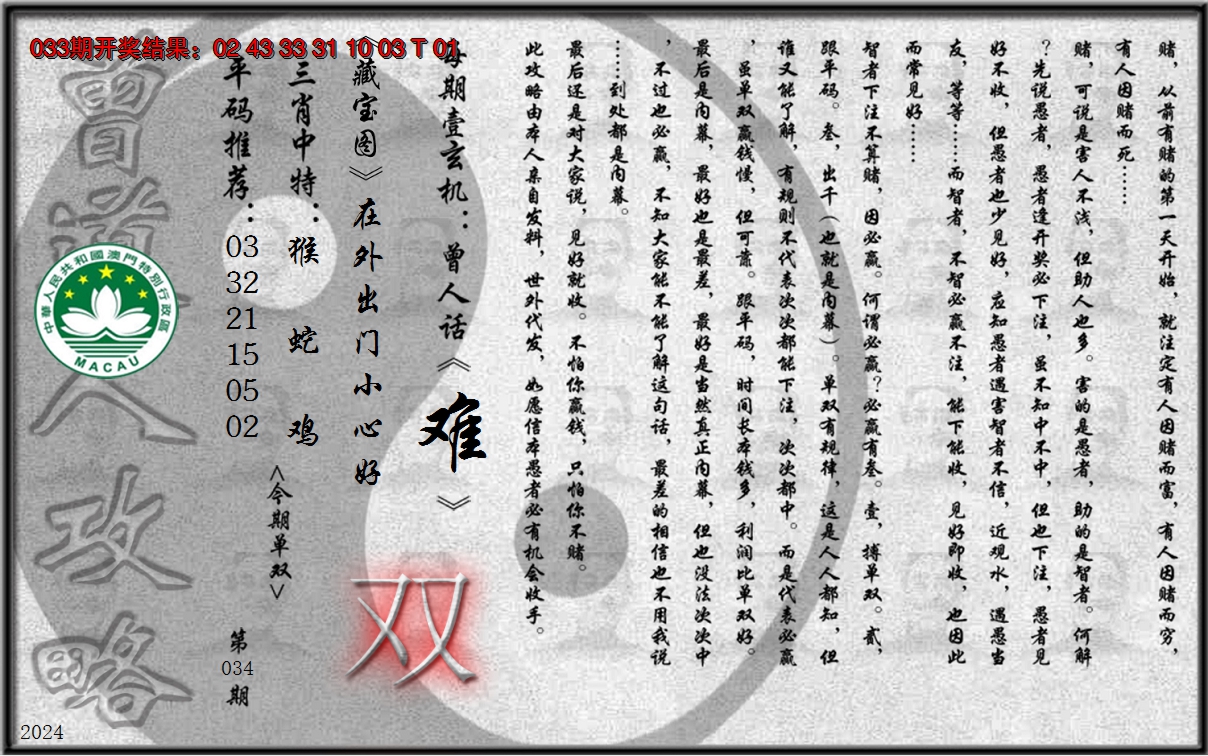 033期开奖结果：02 43 33 31 10 03 T 01
赌，从前有赌的第一天开始，就注定有人因赌而富，有人因赌而穷，
有人因赌而死……
赌，可说是害人不浅，但助人也多。害的是愚者，助的是智者。何解
？先说愚者，愚者逢开奖必下注，虽不知中不中，但也下注，愚者见
好不收，但愚者也少见好，应知愚者遇害智者不信，近观水，遇愚当
友，等等……而智者，不智必赢不注，能下能收，见好即收，也因此
而常见好……
智者下注不算赌，因必赢。何谓必赢？必赢有叁。壹，搏单双。贰，
跟平码。叁，出千（也就是内幕）。单双有规律，这是人人都知，但
谁又能了解，有规则不代表次次都能下注，次次都中。而是代表必赢
，虽单双赢钱慢，但可靠。跟平码，时间长本钱多，利润比单双好。
最后是内幕，最好也是最差，最好是当然真正内幕，但也没法次次中
，不过也必赢，不知大家能不能了解这句话，最差的相信也不用我说
……到处都是内幕。
最后还是对大家说，见好就收。不怕你赢钱，只怕你不赌。
此攻略由本人亲自发料，世外代发，如愿信本愚者必有机会收手。
每期壹玄机：曾人话《难》
《藏宝图》在外出门小心好
双
三肖中特：猴 蛇 鸡
<今期单双>
平码推荐：03 32 21 15 05 02
第034期
曾道人攻略
中華人民共和國澳門特別行政區
MACAU
2024